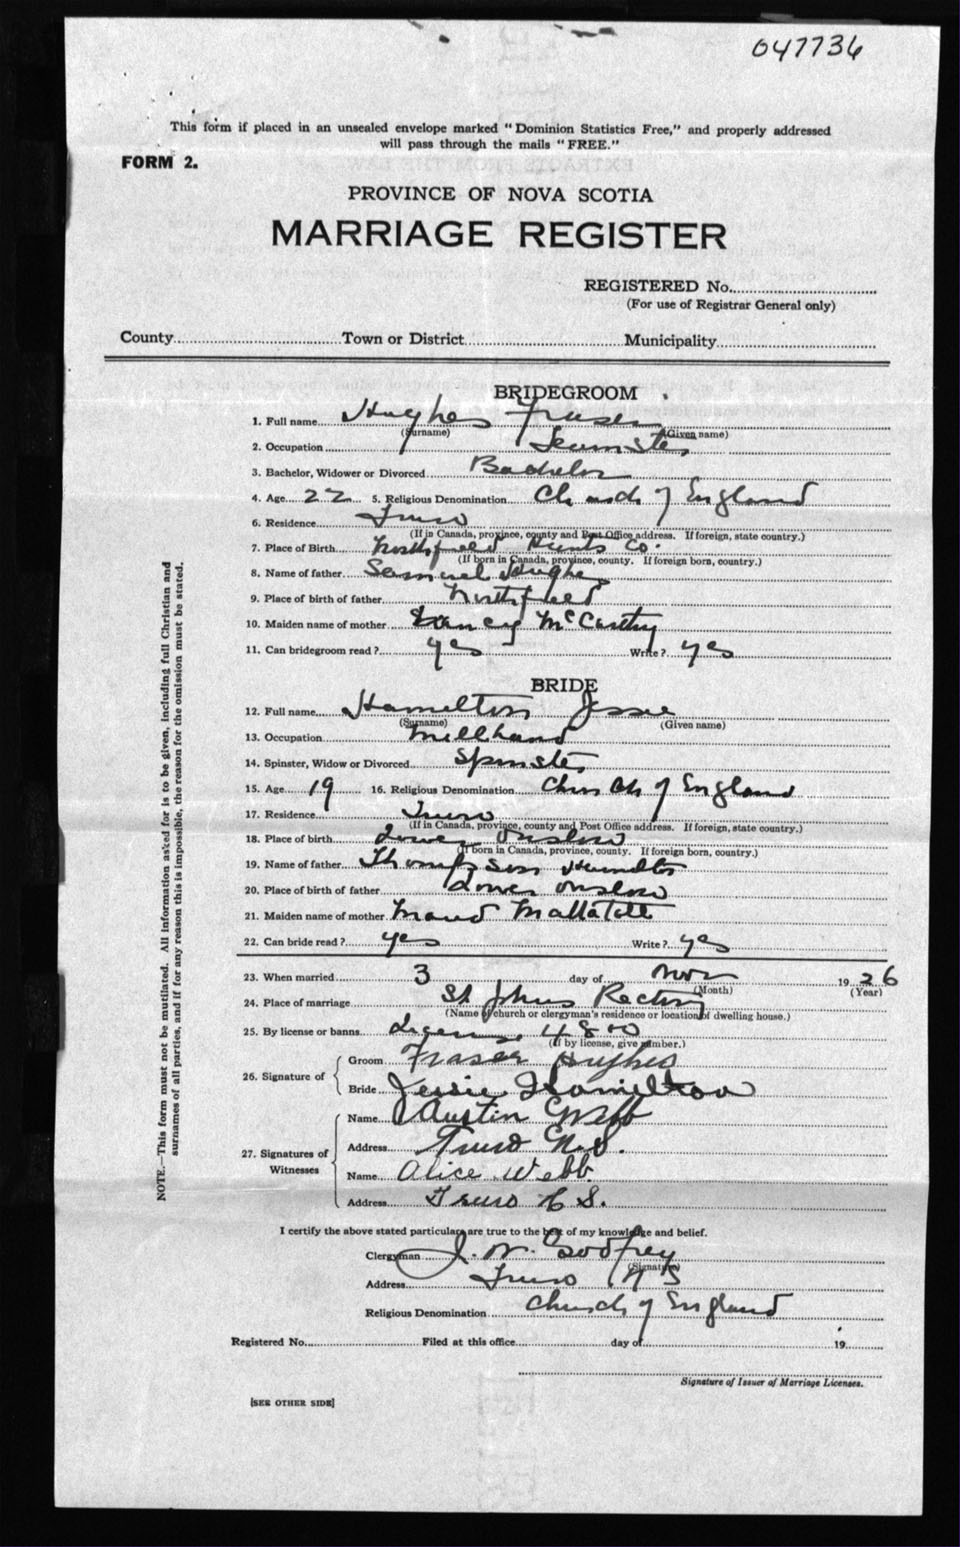 047736
This form if placed in an unsealed envelope marked "Dominion Statistics Free," and properly addressed
will pass through the mails "FREE."
FORM 2.
PROVINCE OF NOVA SCOTIA
MARRIAGE REGISTER
REGISTERED No.
(For use of Registrar General only)
County Town or District Municipality
BRIDEGROOM
1. Full name Hughes Fraser
(Surname) (Given name)
2. Occupation Teamster
3. Bachelor, Widower or Divorced Bachelor
4. Age 22 5. Religious Denomination Church of England
6. Residence Truro
(If in Canada, province, county and Post Office address. If foreign, state country.)
7. Place of Birth Northfield Hants Co.
(If born in Canada, province, county. If foreign born, country.)
8. Name of father Samuel Hughes
9. Place of birth of father Northfield
10. Maiden name of mother Nancy McCarthy
11. Can bridegroom read? yes Write? yes
BRIDE
12. Full name Hamilton Jessie
(Surname) (Given name)
13. Occupation Millhand
14. Spinster, Widow or Divorced Spinster
15. Age 19 16. Religious Denomination Church of England
17. Residence Truro
(If in Canada, province, county and Post Office address. If foreign, state country.)
18. Place of birth Lower Onslow
(If born in Canada, province, county. If foreign born, country.)
19. Name of father Thompson Hamilton
20. Place of birth of father Lower Onslow
21. Maiden name of mother Maud
22. Can bride read? yes Write? yes
23. When married 3 day of Nov 1926
(Month) (Year)
24. Place of marriage St Johns Rectory
(Name of church or clergyman's residence or location of dwelling house.)
25. By license or banns License 4800
(If by license, give number.)
26. Signature of
Groom Fraser Hughes
Bride Jessie Hamilton
27. Signatures of Witnesses
Name Austin Webb
Address Truro N.S.
Name Alice Webb
Address Truro N S.
I certify the above stated particulars are true to the best of my knowledge and belief.
Clergyman J. W. Godfrey
(Signature)
Address Truro N S
Religious Denomination Church of England
Registered No. Filed at this office day of 19
Signature of Issuer of Marriage Licenses.
[SEE OTHER SIDE]
NOTE.—This form must not be mutilated. All information asked for is to be given, including full Christian and
surnames of all parties, and if for any reason this is impossible, the reason for the omission must be stated.